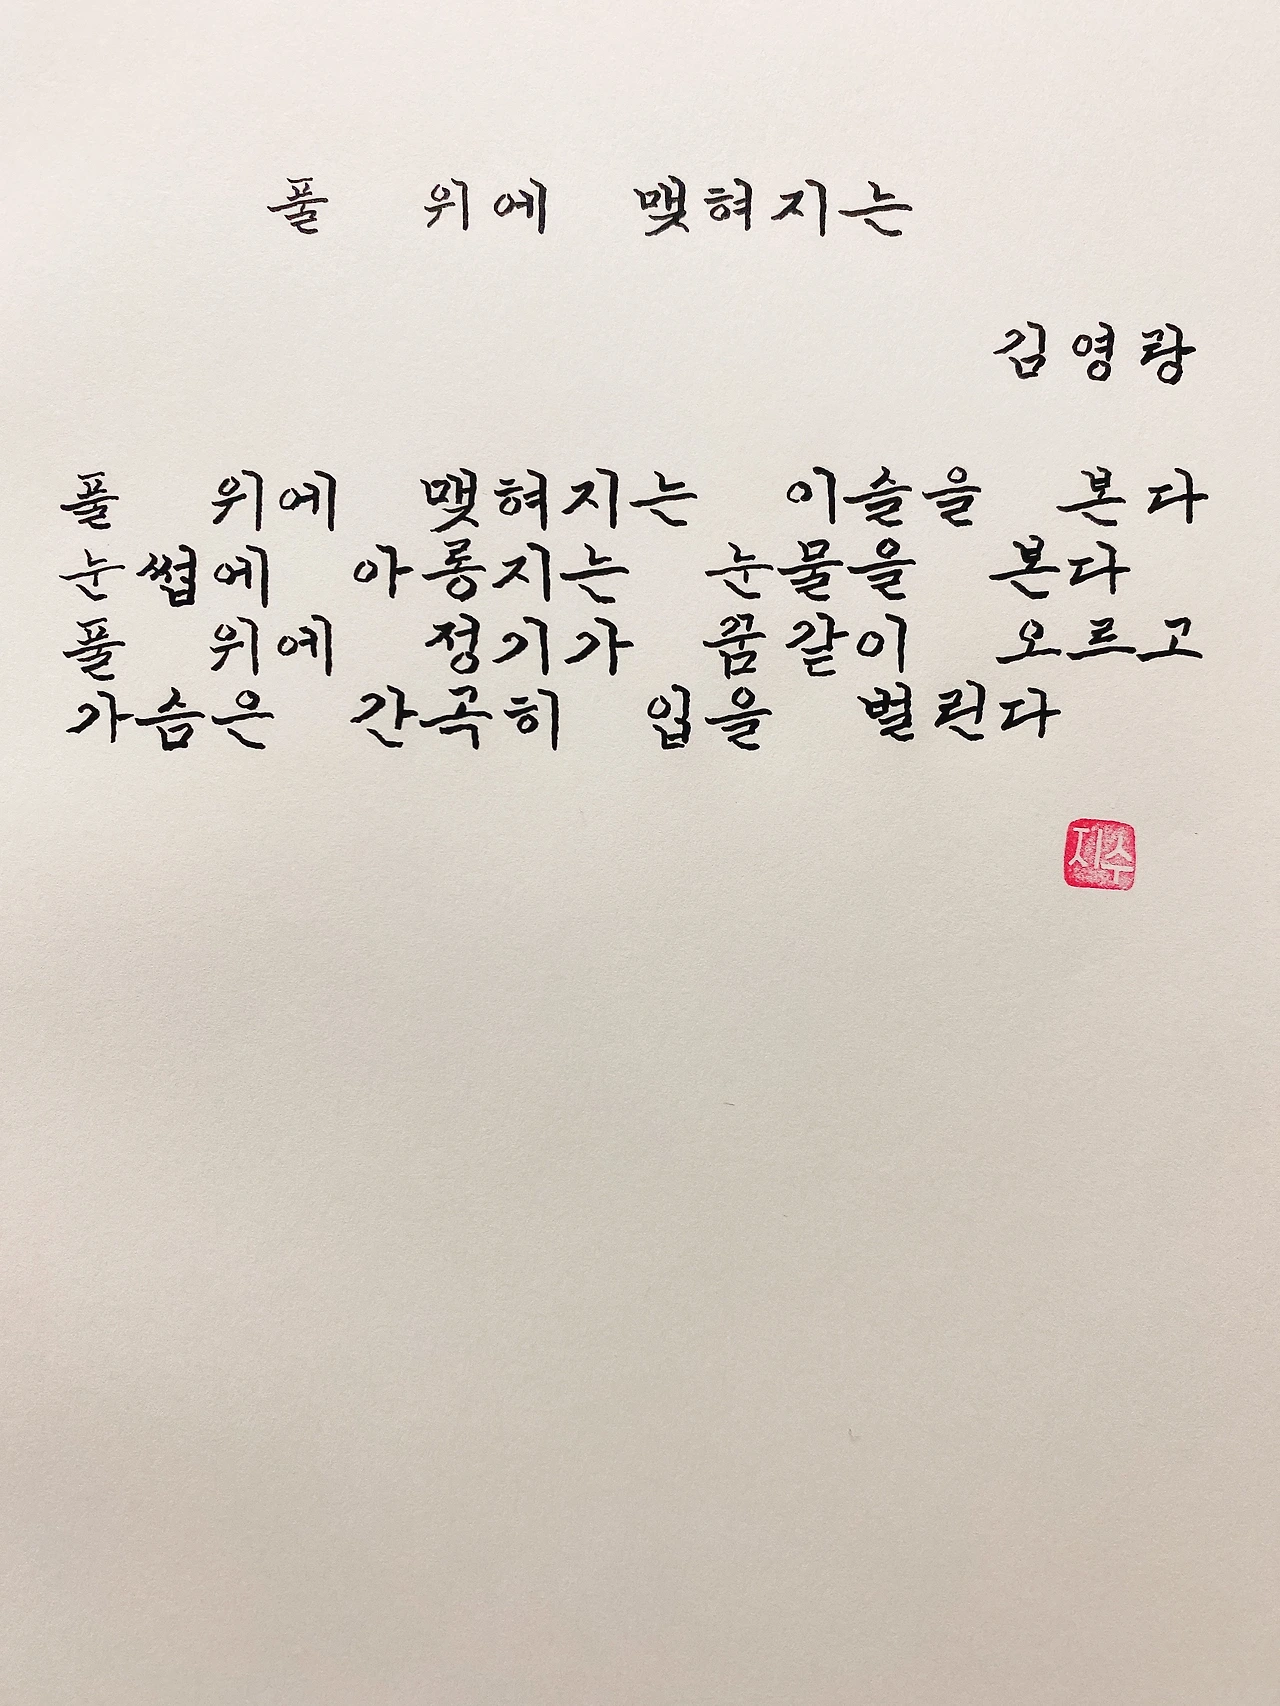 풀 위에 맺혀지는
김영랑
풀 위에 맺혀지는 이슬을 본다
눈썹에 아롱지는 눈물을 본다
풀 위에 정기가 꿈같이 오르고
가슴은 간곡히 입을 벌린다
지수